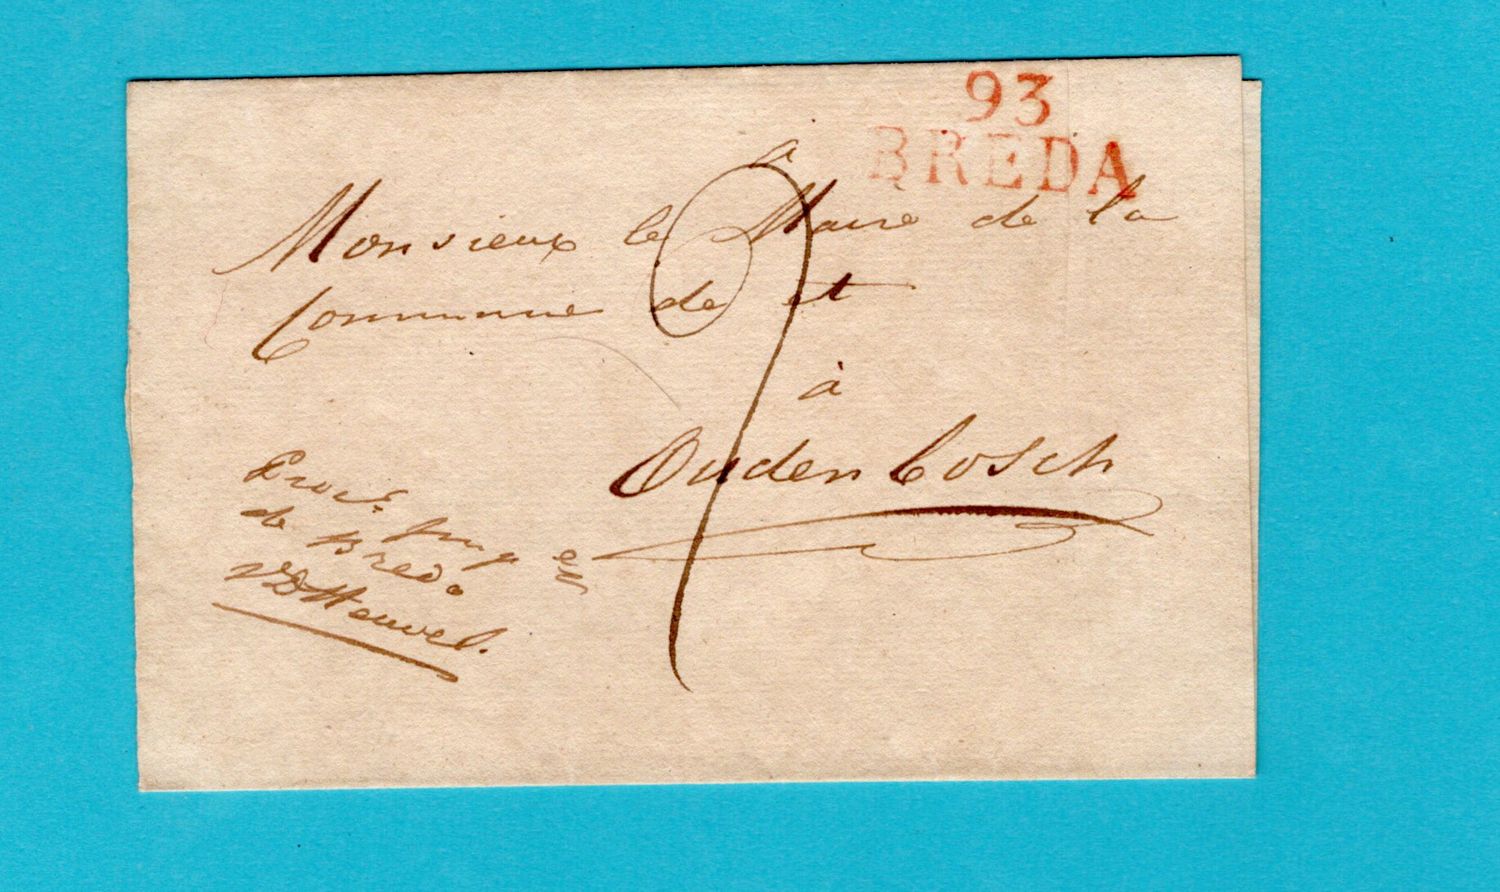 93
BREDA
a
Monsieur le Maire de la
Commune de et
à
Oudenbosch
de Breda
VDHeuvel.